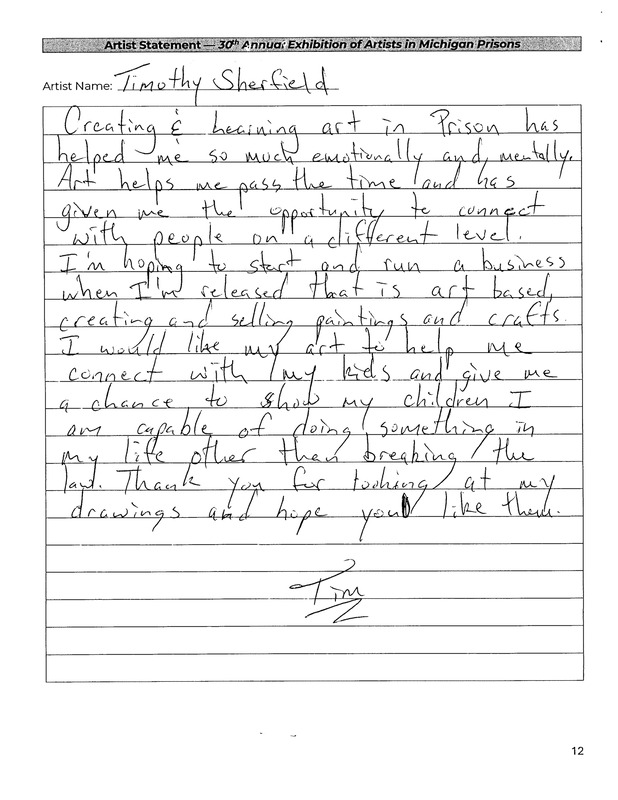 Artist Statement — 30th Annual Exhibition of Artists in Michigan Prisons
Artist Name: Timothy Sherfield
Creating & learning art in Prison has
helped me so much emotionally and, mentally.
Art helps me pass the time and has
given me the opportunity to connect
with people on a different level.
I'm hoping to start and run a business
when I'm released that is art based,
creating and selling paintings and crafts.
I would like my art to help me
connect with my kids and give me
a chance to show my children I
am capable of doing something in
my life other than breaking the
law. Thank you for looking at my
drawings and hope you like them.
Tim
12